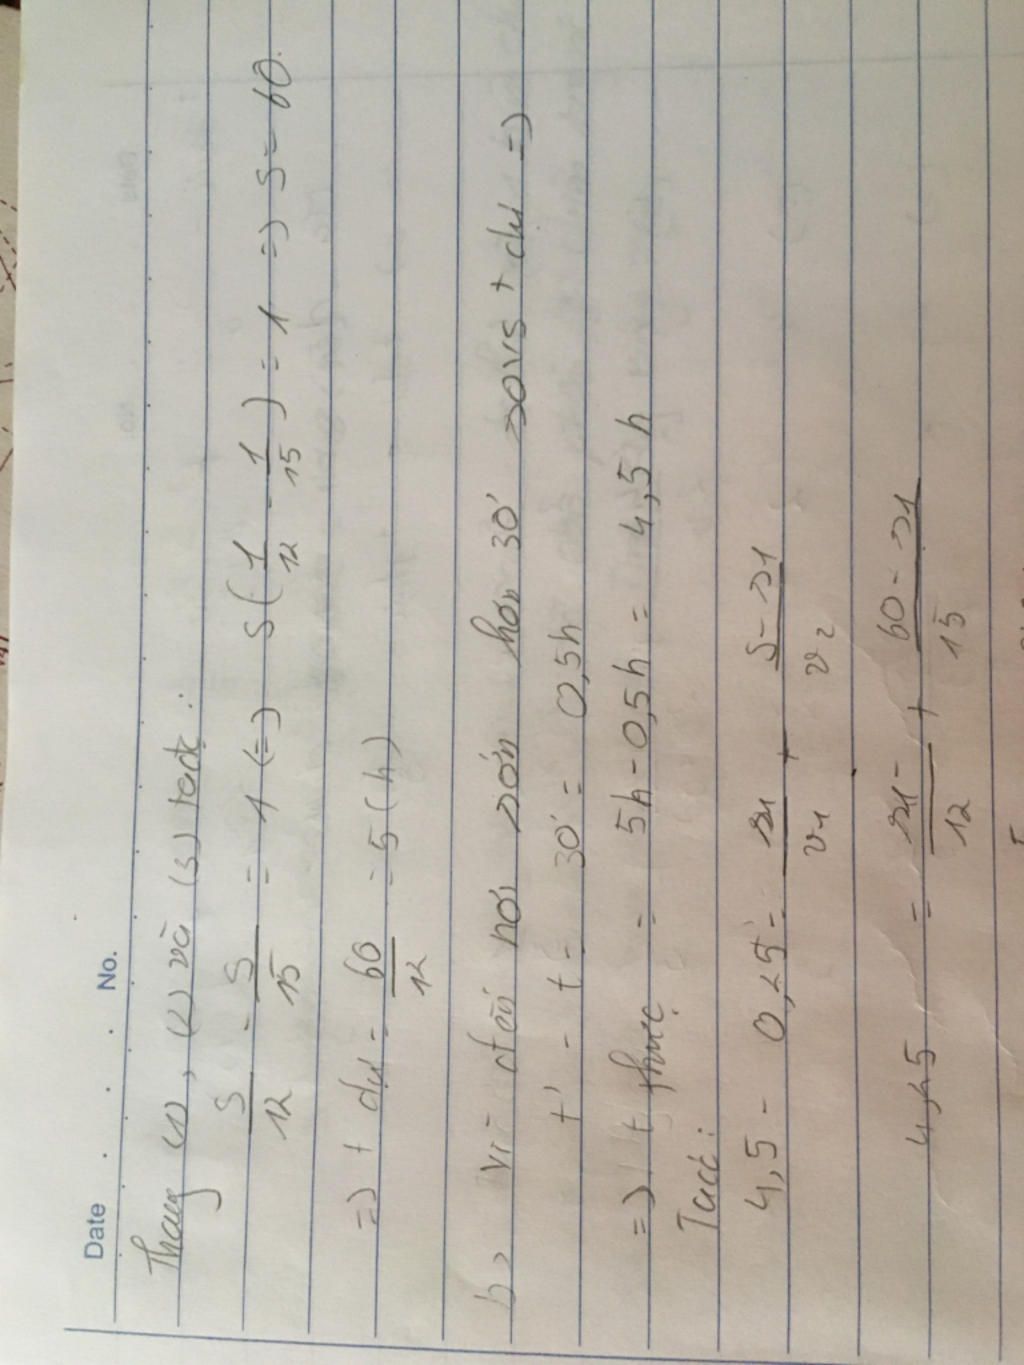 Date No.
Thay (1), (2) và (3) tacó:
S/12 - S/15 = 1 (=) S(1/12 - 1/15) = 1 =) S = 60.
=) t dự = 60/12 = 5 (h)
b, vì đến nơi sớm hơn 30' so vs t dự =)
t' - t = 30' = 0,5h
=) t thực = 5h - 0,5h = 4,5 h
Tacó:
4,5 - 0,25 = s1/v1 + S-s1/v2
4,25 = s1/12 + 60-s1/15